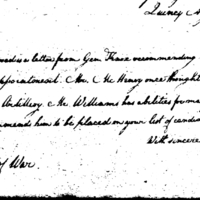 Quincy
is a letter from Gen
recommending
appointment. Mr. McHenry once thought
Artillery Mr Williams has abilities for ma
mends him to be placed on your list of candi
With sincere
of War.